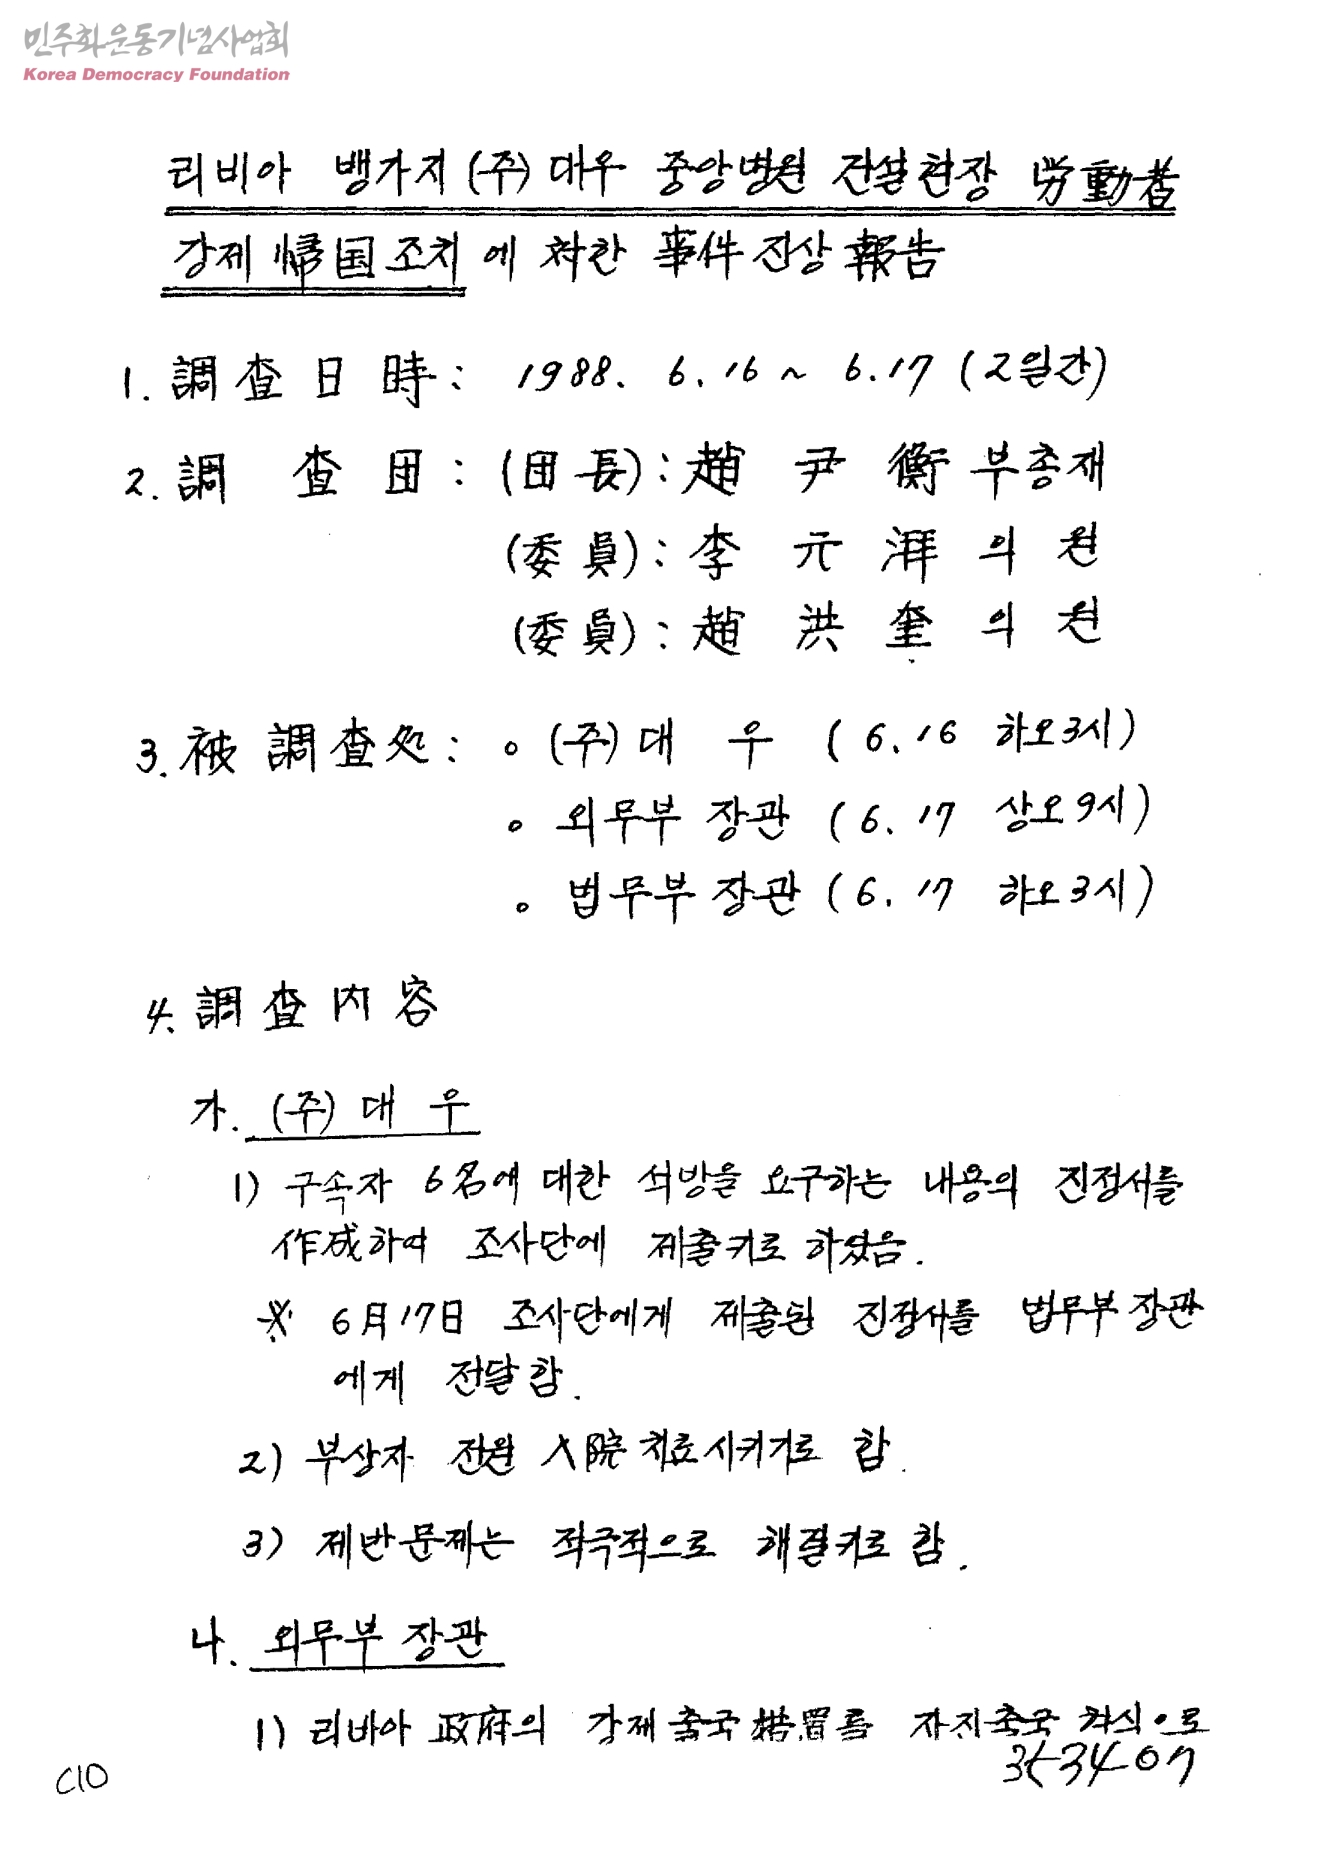 민주화운동기념사업회
Korea Democracy Foundation
리비아 뱅가지 (주) 대우 중앙병원 건설현장 労動者
강제 帰国조치에 対한 事件 진상 報告
1. 調査日時 : 1988. 6. 16 ~ 6. 17 (2일간)
2. 調 査 団 : (団長) : 趙 尹 衡 부총재
(委員) : 李 元 湃 의 원
(委員) : 趙 洪 奎 의 원
3. 被調査処 : ○ (주) 대 우 ( 6. 16 하오3시)
○ 외무부 장관 ( 6. 17 상오9시)
○ 법무부 장관 ( 6. 17 하오3시)
4. 調査内容
가. (주) 대 우
1) 구속자 6名에 대한 석방을 요구하는 내용의 진정서를
作成하여 조사단에 제출키로 하였음.
※ 6月17日 조사단에게 제출된 진정서를 법무부장관
에게 전달함.
2) 부상자 전원 入院치료시키기로 함.
3) 제반문제는 적극적으로 해결키로 함.
나. 외무부 장관
1) 리비아 政府의 강제출국措置를 자진출국 형식으로
C10